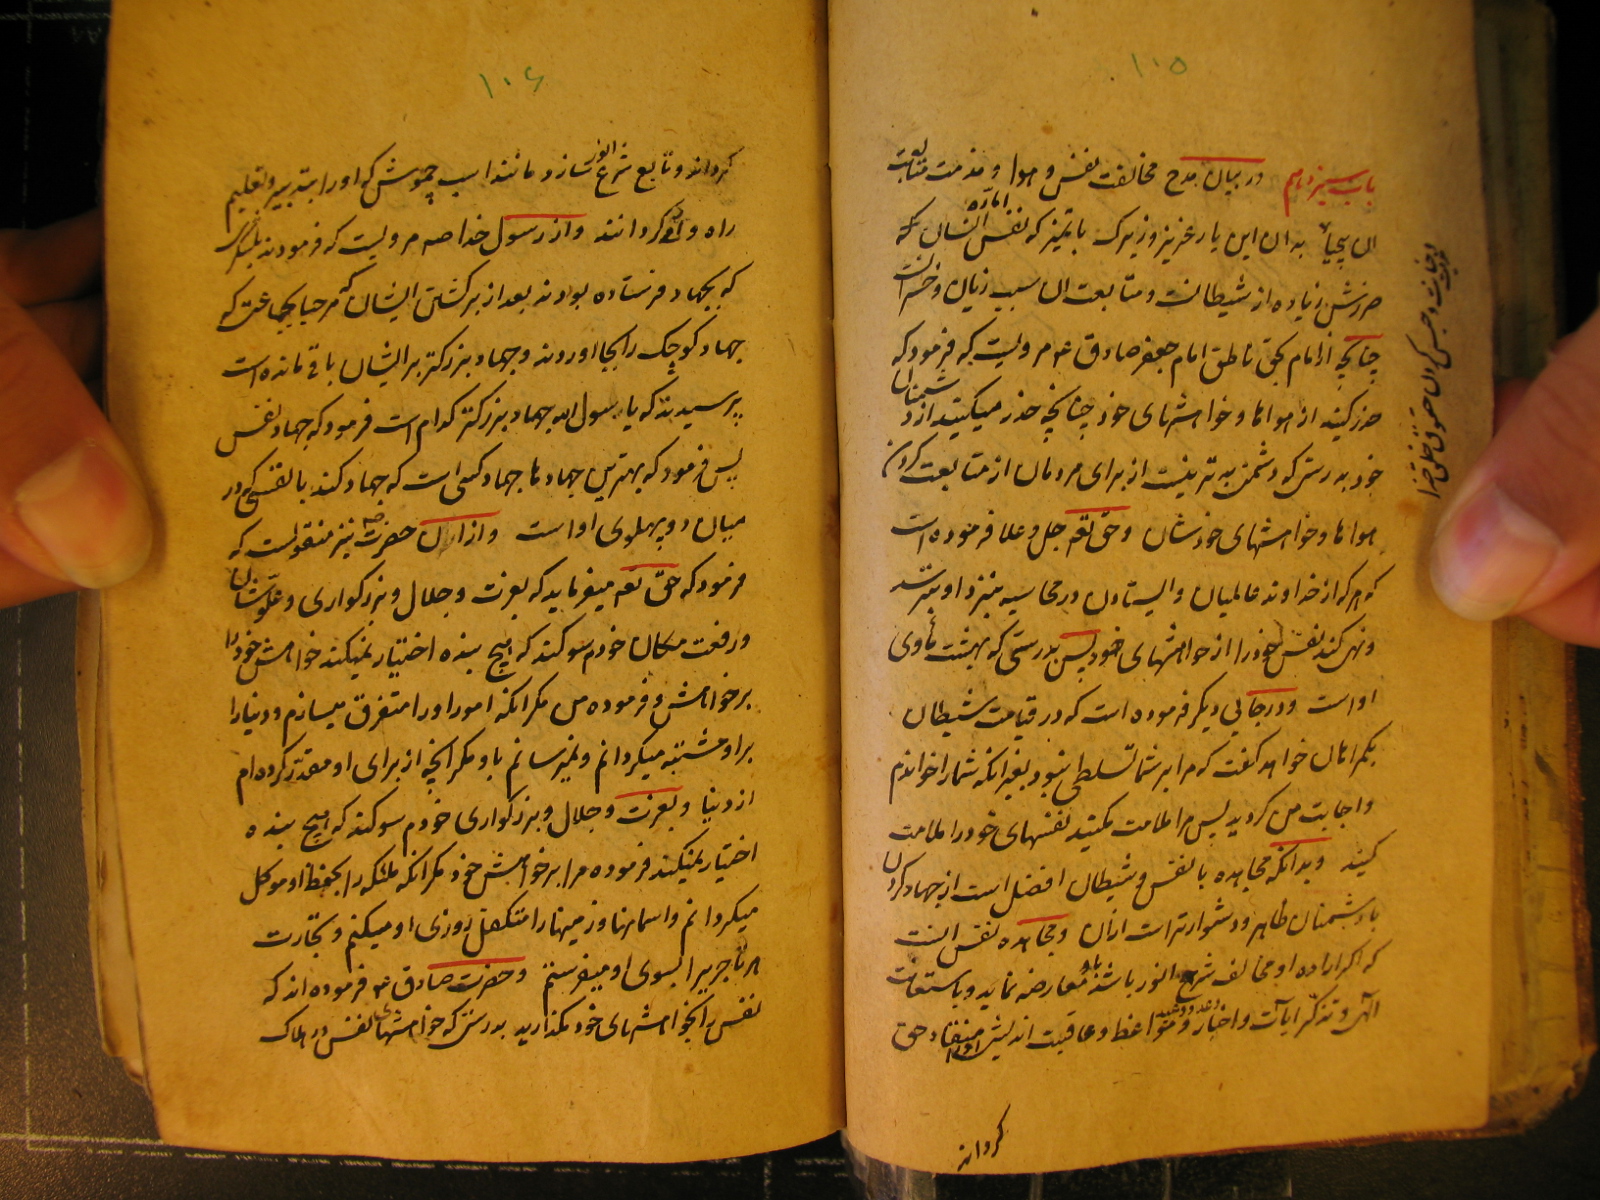 ۱۰۵
باب سیزدهم در بیان مدح مخالفت نفس و هوا و مذمت متابعت
بدان این یار عزیز و زیرک با تمیز که نفس اماره انسان که
ضررش زیاده از شیطانست و متابعت ان سبب زیان و خسرانست
چنانچه از امام بحق ناطق امام جعفر صادق ع مرویست که فرمود که
حذر کنید از هواها و خواهشهای خود چنانچه حذر میکنید از دشمنان
خود بدرستی که دشمن تر نیست از برای مردمان از متابعت کردن
هواها و خواهشهای خودشان و حق تعم جل و علا فرموده است
که هرکه از خداوند عالمیان و ایستادن در محاسبه نزد او بترسد
و نهی کند نفس خود را از خواهشهای خود پس بدرستی که بهشت ماوی
اواست و در جایی دیگر فرموده است که در قیامت شیطان
بگمراهان خواهد گفت که مرا بر شما تسلطی نبود بغیر انکه شما را خواندم
و اجابت من کردید پس مرا ملامت مکنید نفسهای خود را ملامت
کنید و بدانکه مجاهده با نفس و شیطان افضل است از جهاد کردن
با دشمنان ظاهر و دشوارتر است ازان و مجاهده نفس اینست
که اگر اراده او مخالف شرع انور باشد با او معارضه نماید و باستعانت
الهی و تذکر ایات و اخبار و مواعظ و عاقبت اندیشی او را منقاد حق
گرداند
۱۰۶
گرداند و تابع شرع انور سازد مانند اسب چموش که او را بتدبیر و تعلیم
راه گردانند و از رسول خدا صم مرویست که فرمودند بلشکری
که بجهاد فرستاده بودند بعد از برگشتن ایشان که مرحبا بجماعتی که
جهاد کوچک را بجا اوردند و جهاد بزرکتر بر ایشان باقی مانده است
پرسیدند که یا رسول الله جهاد بزرکتر کدام است فرمود که جهاد نفس
پس فرمود که بهترین جهادها جهاد کسی است که جهاد کند با نفسی که در
میان دو پهلوی او است و از ان حضرت نیز منقولست که
فرمود که حق تعم میفرماید که بعزت و جلال و بزرکواری و علو شان
و رفعت مکان خودم سوکند که هیچ بنده اختیار نمیکند خواهش خود را
بر خواهش و فرموده من مکر انکه امور او را متفرق میسازم و دنیا را
بر او مشتبه میکردانم و نمیرسانم باو مکر انچه از برای او مقدر کرده ام
از دنیا و بعزت و جلال و بزرکواری خودم سوکند که هیچ بنده
اختیار نمیکند فرموده مرا بر خواهش خود مکر انکه ملئکه را بحفظ او موکل
میکردانم و اسمانها و زمینها را متکفل روزی او میکنم و تجارت
هر تاجریرا بسوی او میفرستم و حضرت صادق ع فرموده اند که
نفس را بخواهشهای خود مکذارید بدرستی که خواهشهای نفس در هلاک